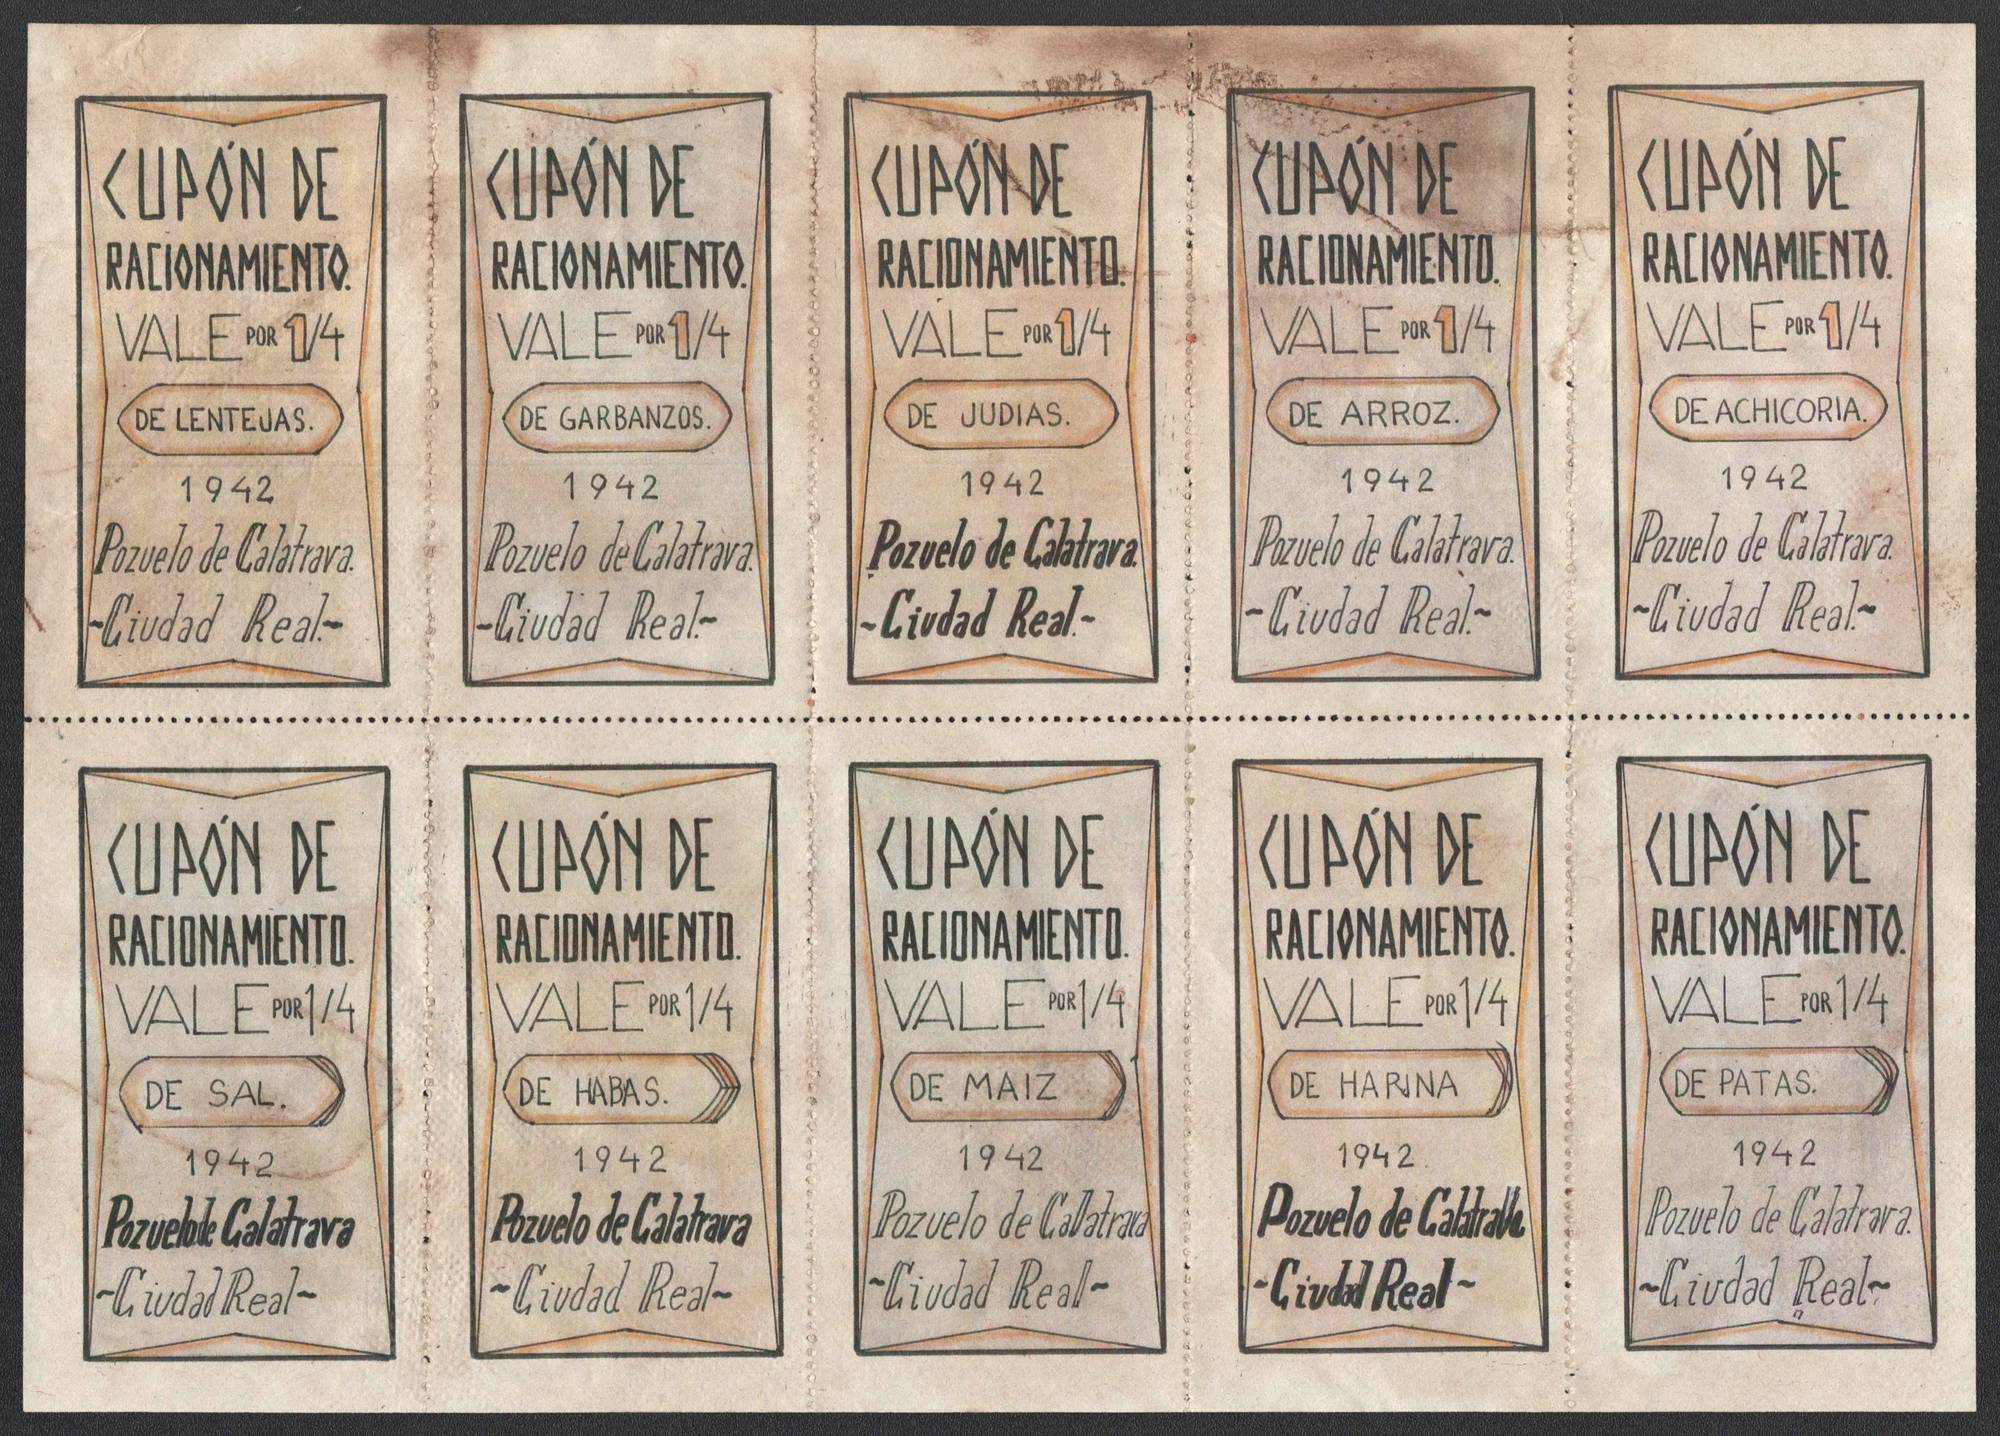 CUPÓN DE
RACIONAMIENTO.
VALE POR 1/4
DE LENTEJAS.
1942
Pozuelo de Calatrava.
~Ciudad Real.~
CUPÓN DE
RACIONAMIENTO.
VALE POR 1/4
DE GARBANZOS.
1942
Pozuelo de Calatrava.
~Ciudad Real.~
CUPÓN DE
RACIONAMIENTO.
VALE POR 1/4
DE JUDIAS.
1942
Pozuelo de Calatrava.
~Ciudad Real.~
CUPÓN DE
RACIONAMIENTO.
VALE POR 1/4
DE ARROZ.
1942
Pozuelo de Calatrava.
~Ciudad Real.~
CUPÓN DE
RACIONAMIENTO.
VALE POR 1/4
DE ACHICORIA.
1942
Pozuelo de Calatrava.
~Ciudad Real.~
CUPÓN DE
RACIONAMIENTO.
VALE POR 1/4
DE SAL.
1942
Pozuelo de Calatrava
~Ciudad Real~
CUPÓN DE
RACIONAMIENTO.
VALE POR 1/4
DE HABAS.
1942
Pozuelo de Calatrava
~Ciudad Real~
CUPÓN DE
RACIONAMIENTO.
VALE POR 1/4
DE MAIZ
1942
Pozuelo de Calatrava
~Ciudad Real~
CUPÓN DE
RACIONAMIENTO.
VALE POR 1/4
DE HARINA
1942.
Pozuelo de Calatrava
~Ciudad Real~
CUPÓN DE
RACIONAMIENTO.
VALE POR 1/4
DE PATAS.
1942
Pozuelo de Calatrava.
~Ciudad Real~